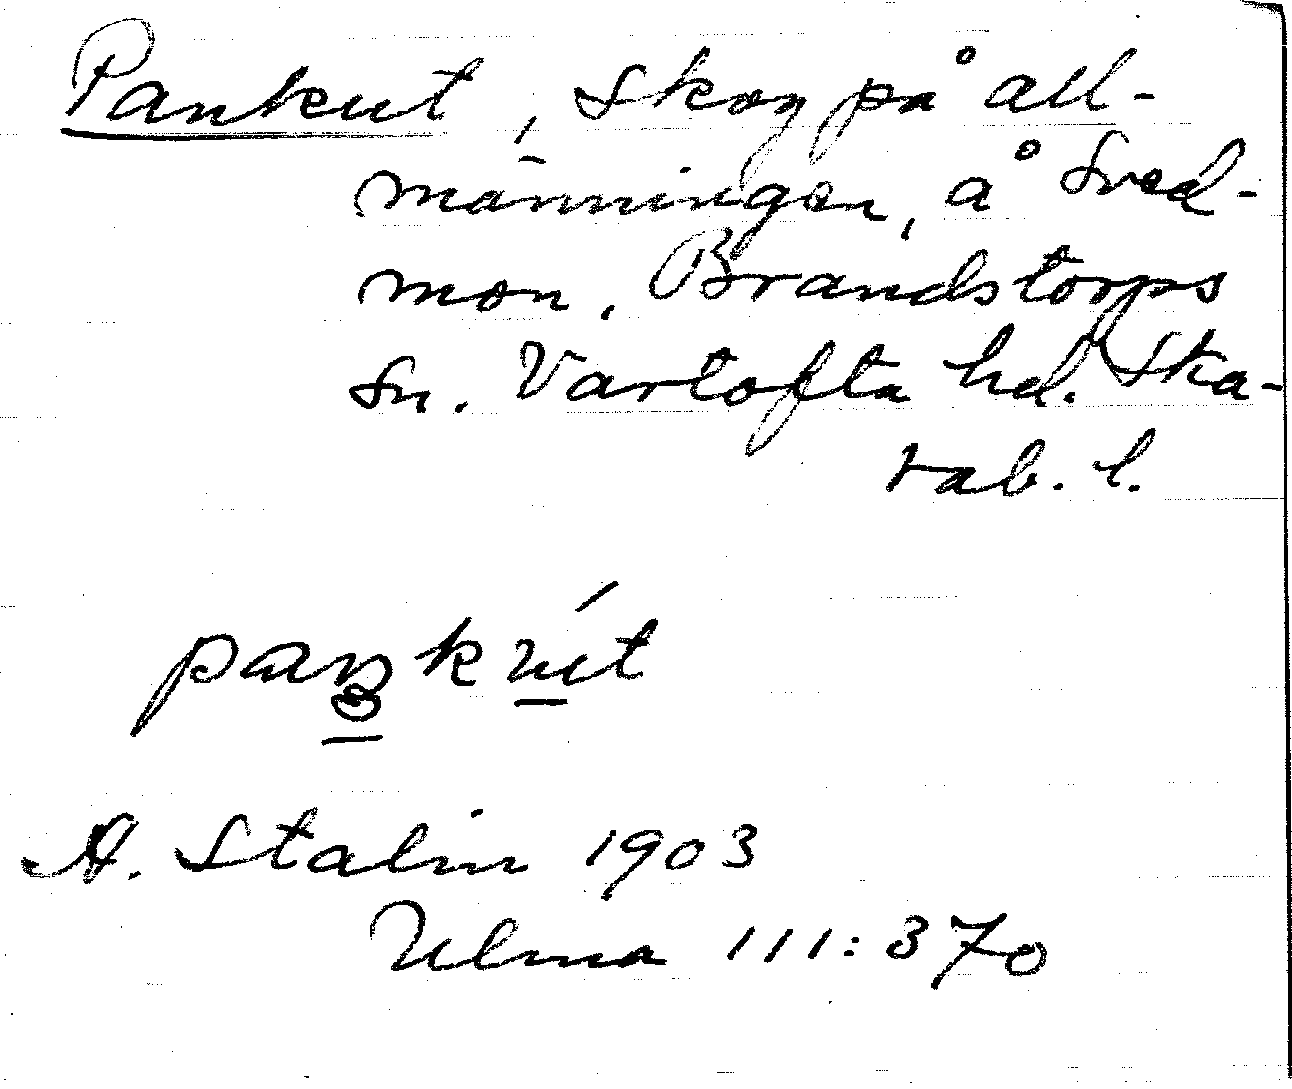 Pankut, skog på all-
männingen, å Sved-
mon, Brandstorps
sn. Vartofta hd. Ska-
rab. l.
A. Stalin 1903
Ulma 111:370